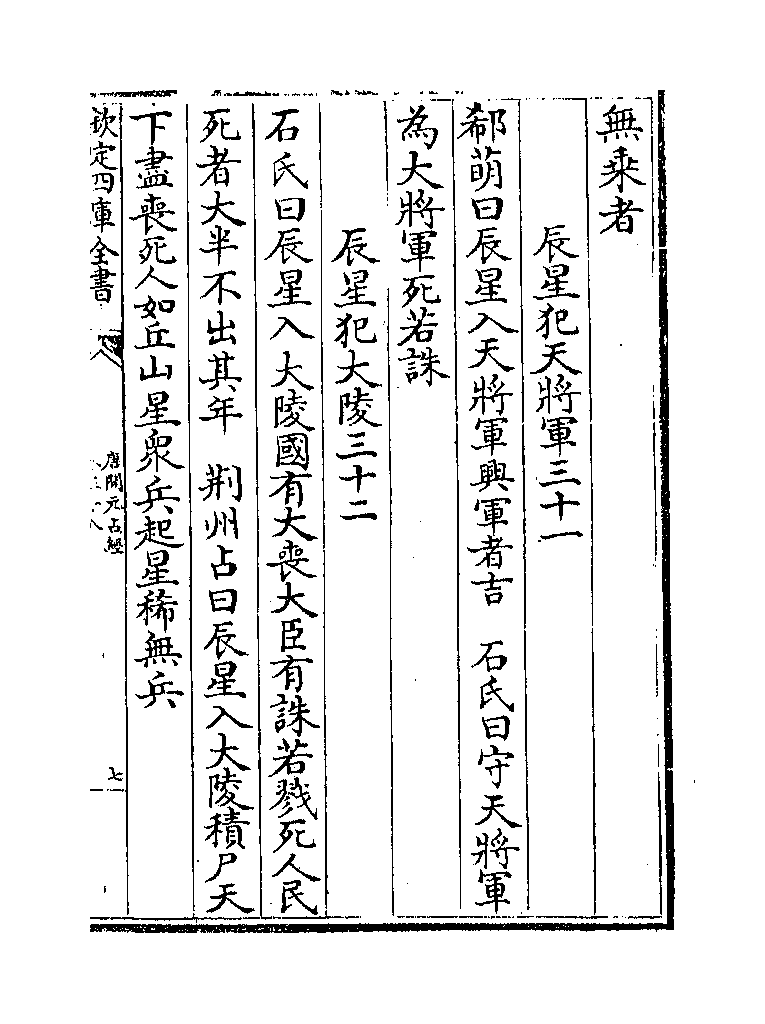 無乗者
辰星犯天將軍三十一
郗萌曰辰星入天將軍興軍者吉　石氏曰守天將軍
為大將軍死若誅
辰星犯大陵三十二
石氏曰辰星入大陵國有大喪大臣有誅若戮死人民
死者大半不出其年　荆州占曰辰星入大陵積尸天
下盡喪死人如丘山星衆兵起星稀無兵
欽定四庫全書
唐開元占經
七